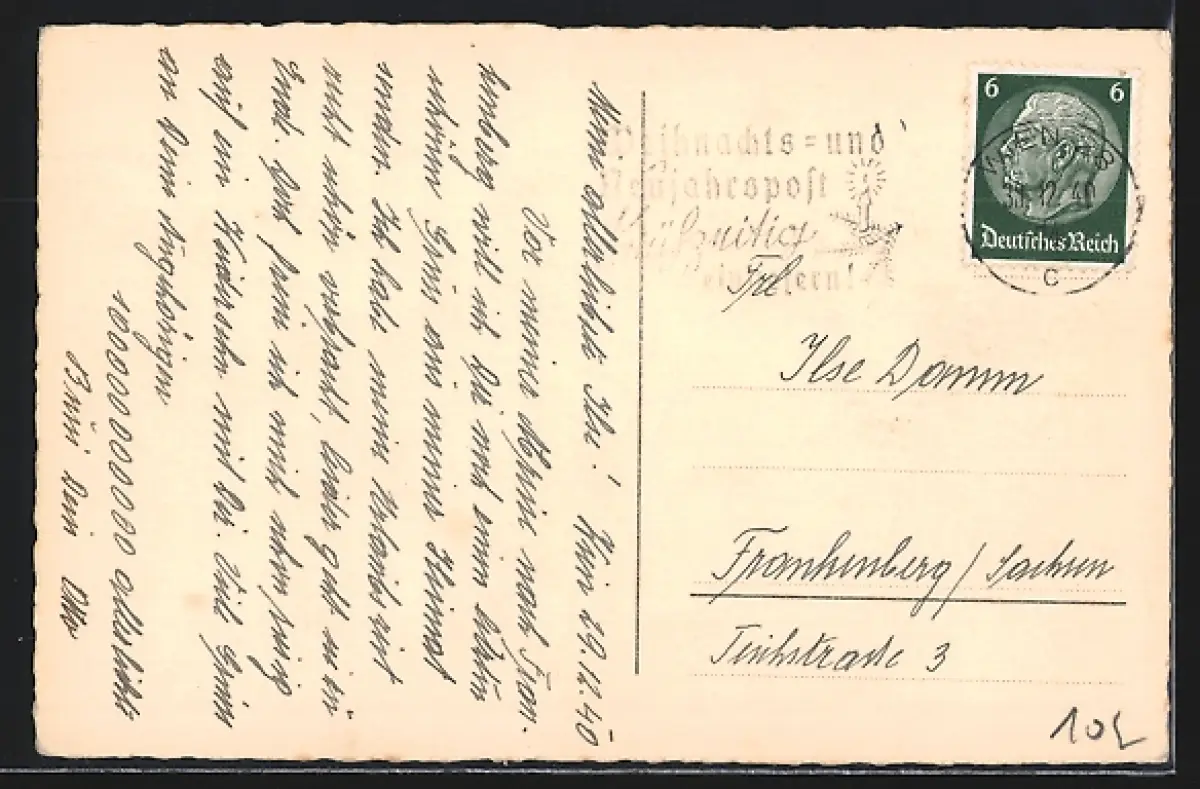 Meine allerliebste Ilse! Wien 29.12.40
Vor meiner Abreise nach Fran-
kenberg will ich Dir noch einen letzten
schönen Gruß aus meiner Heimat
senden. Ich habe meine Urlaubszeit
nicht mehr verbracht, leider geht es in
Ende. Doch freue ich mich schon riesig
auf ein Wiedersehen mit Dir. Viele Grüße
an Deine Angehörigen
10000000000 allerliebste
Bussi Dein
Weihnachts=und
Neujahrspost
frühzeitig
einliefern!
6 6
WIEN
12.40
Deutsches Reich
C
Frl
Ilse Damm
Frankenberg/Sachsen
Teichstraße 3